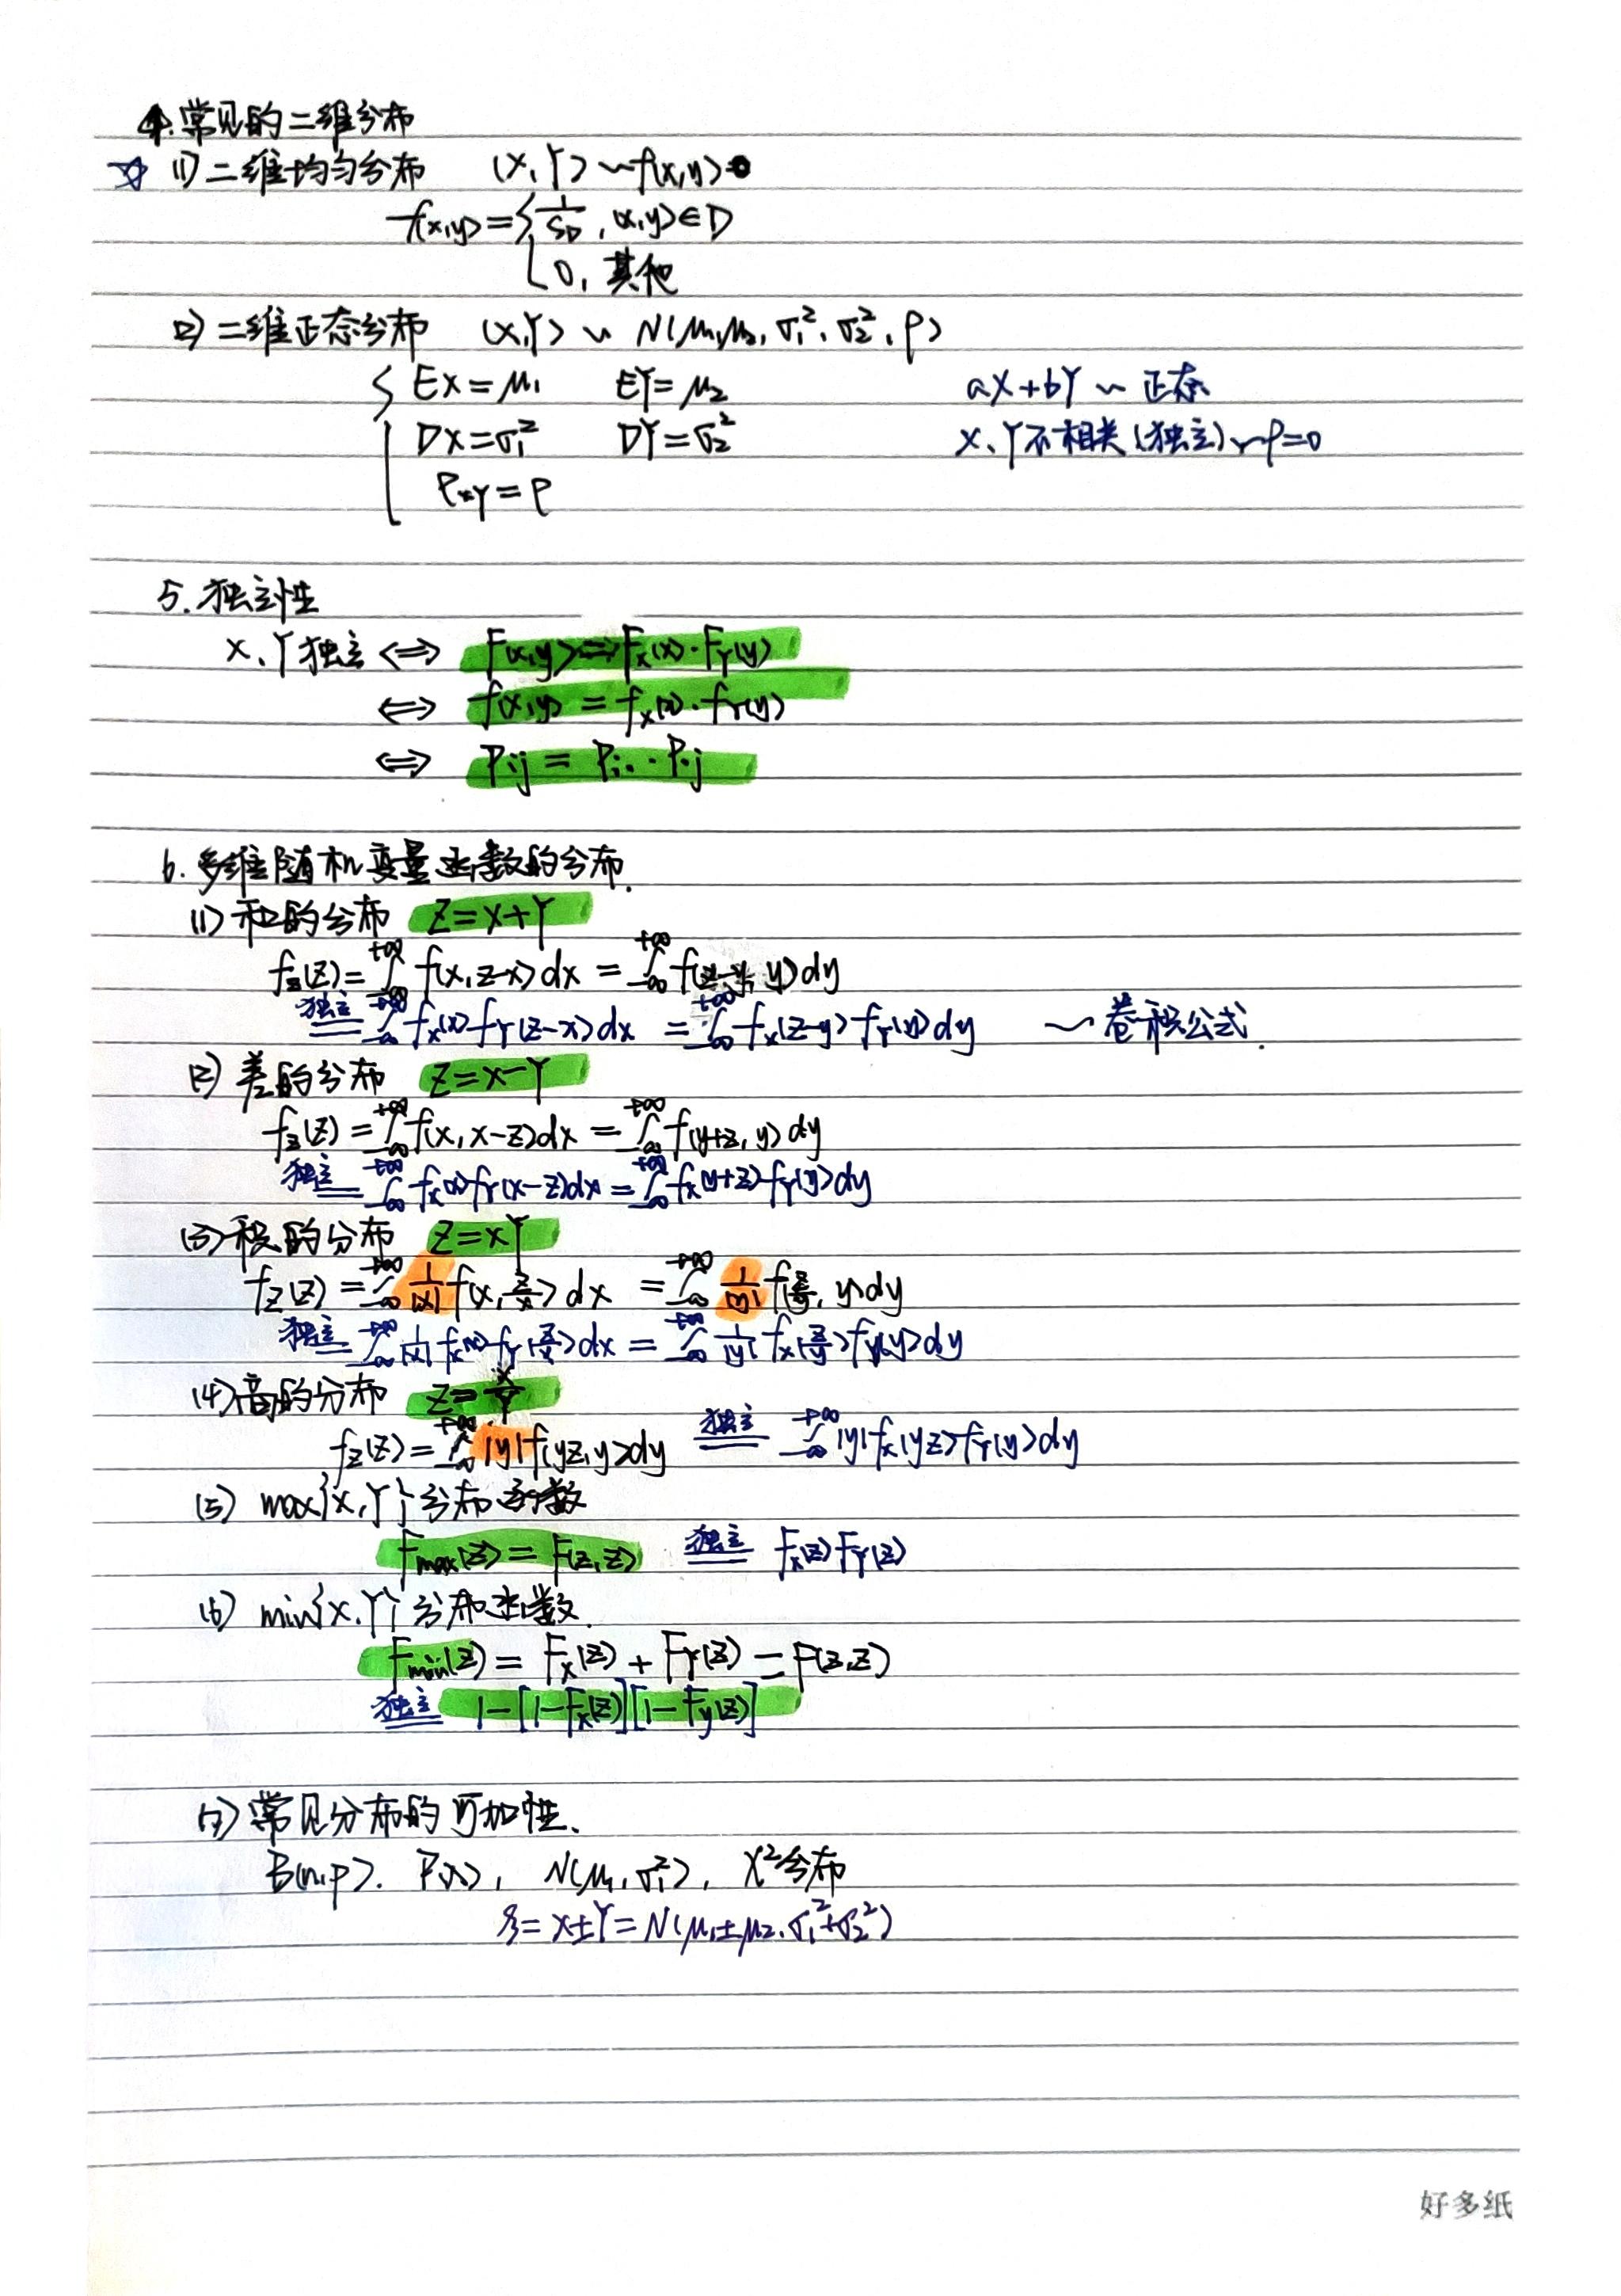 4. 常见的二维分布
☆ (1) 二维均匀分布 (X,Y) ~ f(x,y)
f(x,y) = { 1/S_D , (x,y)∈D
0, 其他
(2) 二维正态分布 (X,Y) ~ N(μ₁,μ₂,σ₁²,σ₂²,ρ)
{ EX=μ₁ EY=μ₂ aX+bY ~ 正态
DX=σ₁² DY=σ₂² X、Y不相关(独立) ~ ρ=0
ρ_XY=ρ
5. 独立性
X、Y独立 ⟺ F(x,y) = F_X(x)·F_Y(y)
⟺ f(x,y) = f_X(x)·f_Y(y)
⟺ P_ij = P_i.·P_.j
6. 多维随机变量函数的分布.
(1) 和的分布 Z=X+Y
f_Z(z) = ∫_{-∞}^{+∞} f(x,z-x)dx = ∫_{-∞}^{+∞} f(z-y,y)dy
独立 = ∫_{-∞}^{+∞} f_X(x)f_Y(z-x)dx = ∫_{-∞}^{+∞} f_X(z-y)f_Y(y)dy ~ 卷积公式.
(2) 差的分布 Z=X-Y
f_Z(z) = ∫_{-∞}^{+∞} f(x,x-z)dx = ∫_{-∞}^{+∞} f(y+z,y)dy
独立 = ∫_{-∞}^{+∞} f_X(x)f_Y(x-z)dx = ∫_{-∞}^{+∞} f_X(y+z)f_Y(y)dy
(3) 积的分布 Z=XY
f_Z(z) = ∫_{-∞}^{+∞} 1/|x| f(x,z/x)dx = ∫_{-∞}^{+∞} 1/|y| f(z/y,y)dy
独立 = ∫_{-∞}^{+∞} 1/|x| f_X(x)f_Y(z/x)dx = ∫_{-∞}^{+∞} 1/|y| f_X(z/y)f_Y(y)dy
(4) 商的分布 Z=X/Y
f_Z(z) = ∫_{-∞}^{+∞} |y|f(yz,y)dy 独立 = ∫_{-∞}^{+∞} |y|f_X(yz)f_Y(y)dy
(5) max{X,Y}分布函数
F_max(z) = F(z,z) 独立 = F_X(z)F_Y(z)
(6) min{X,Y}分布函数.
F_min(z) = F_X(z) + F_Y(z) - F(z,z)
独立 = 1-[1-F_X(z)][1-F_Y(z)]
(7) 常见分布的可加性、
B(n,p). P(λ), N(μ₁,σ₁²), χ²分布
Z=X±Y=N(μ₁±μ₂,σ₁²+σ₂²)
好多纸